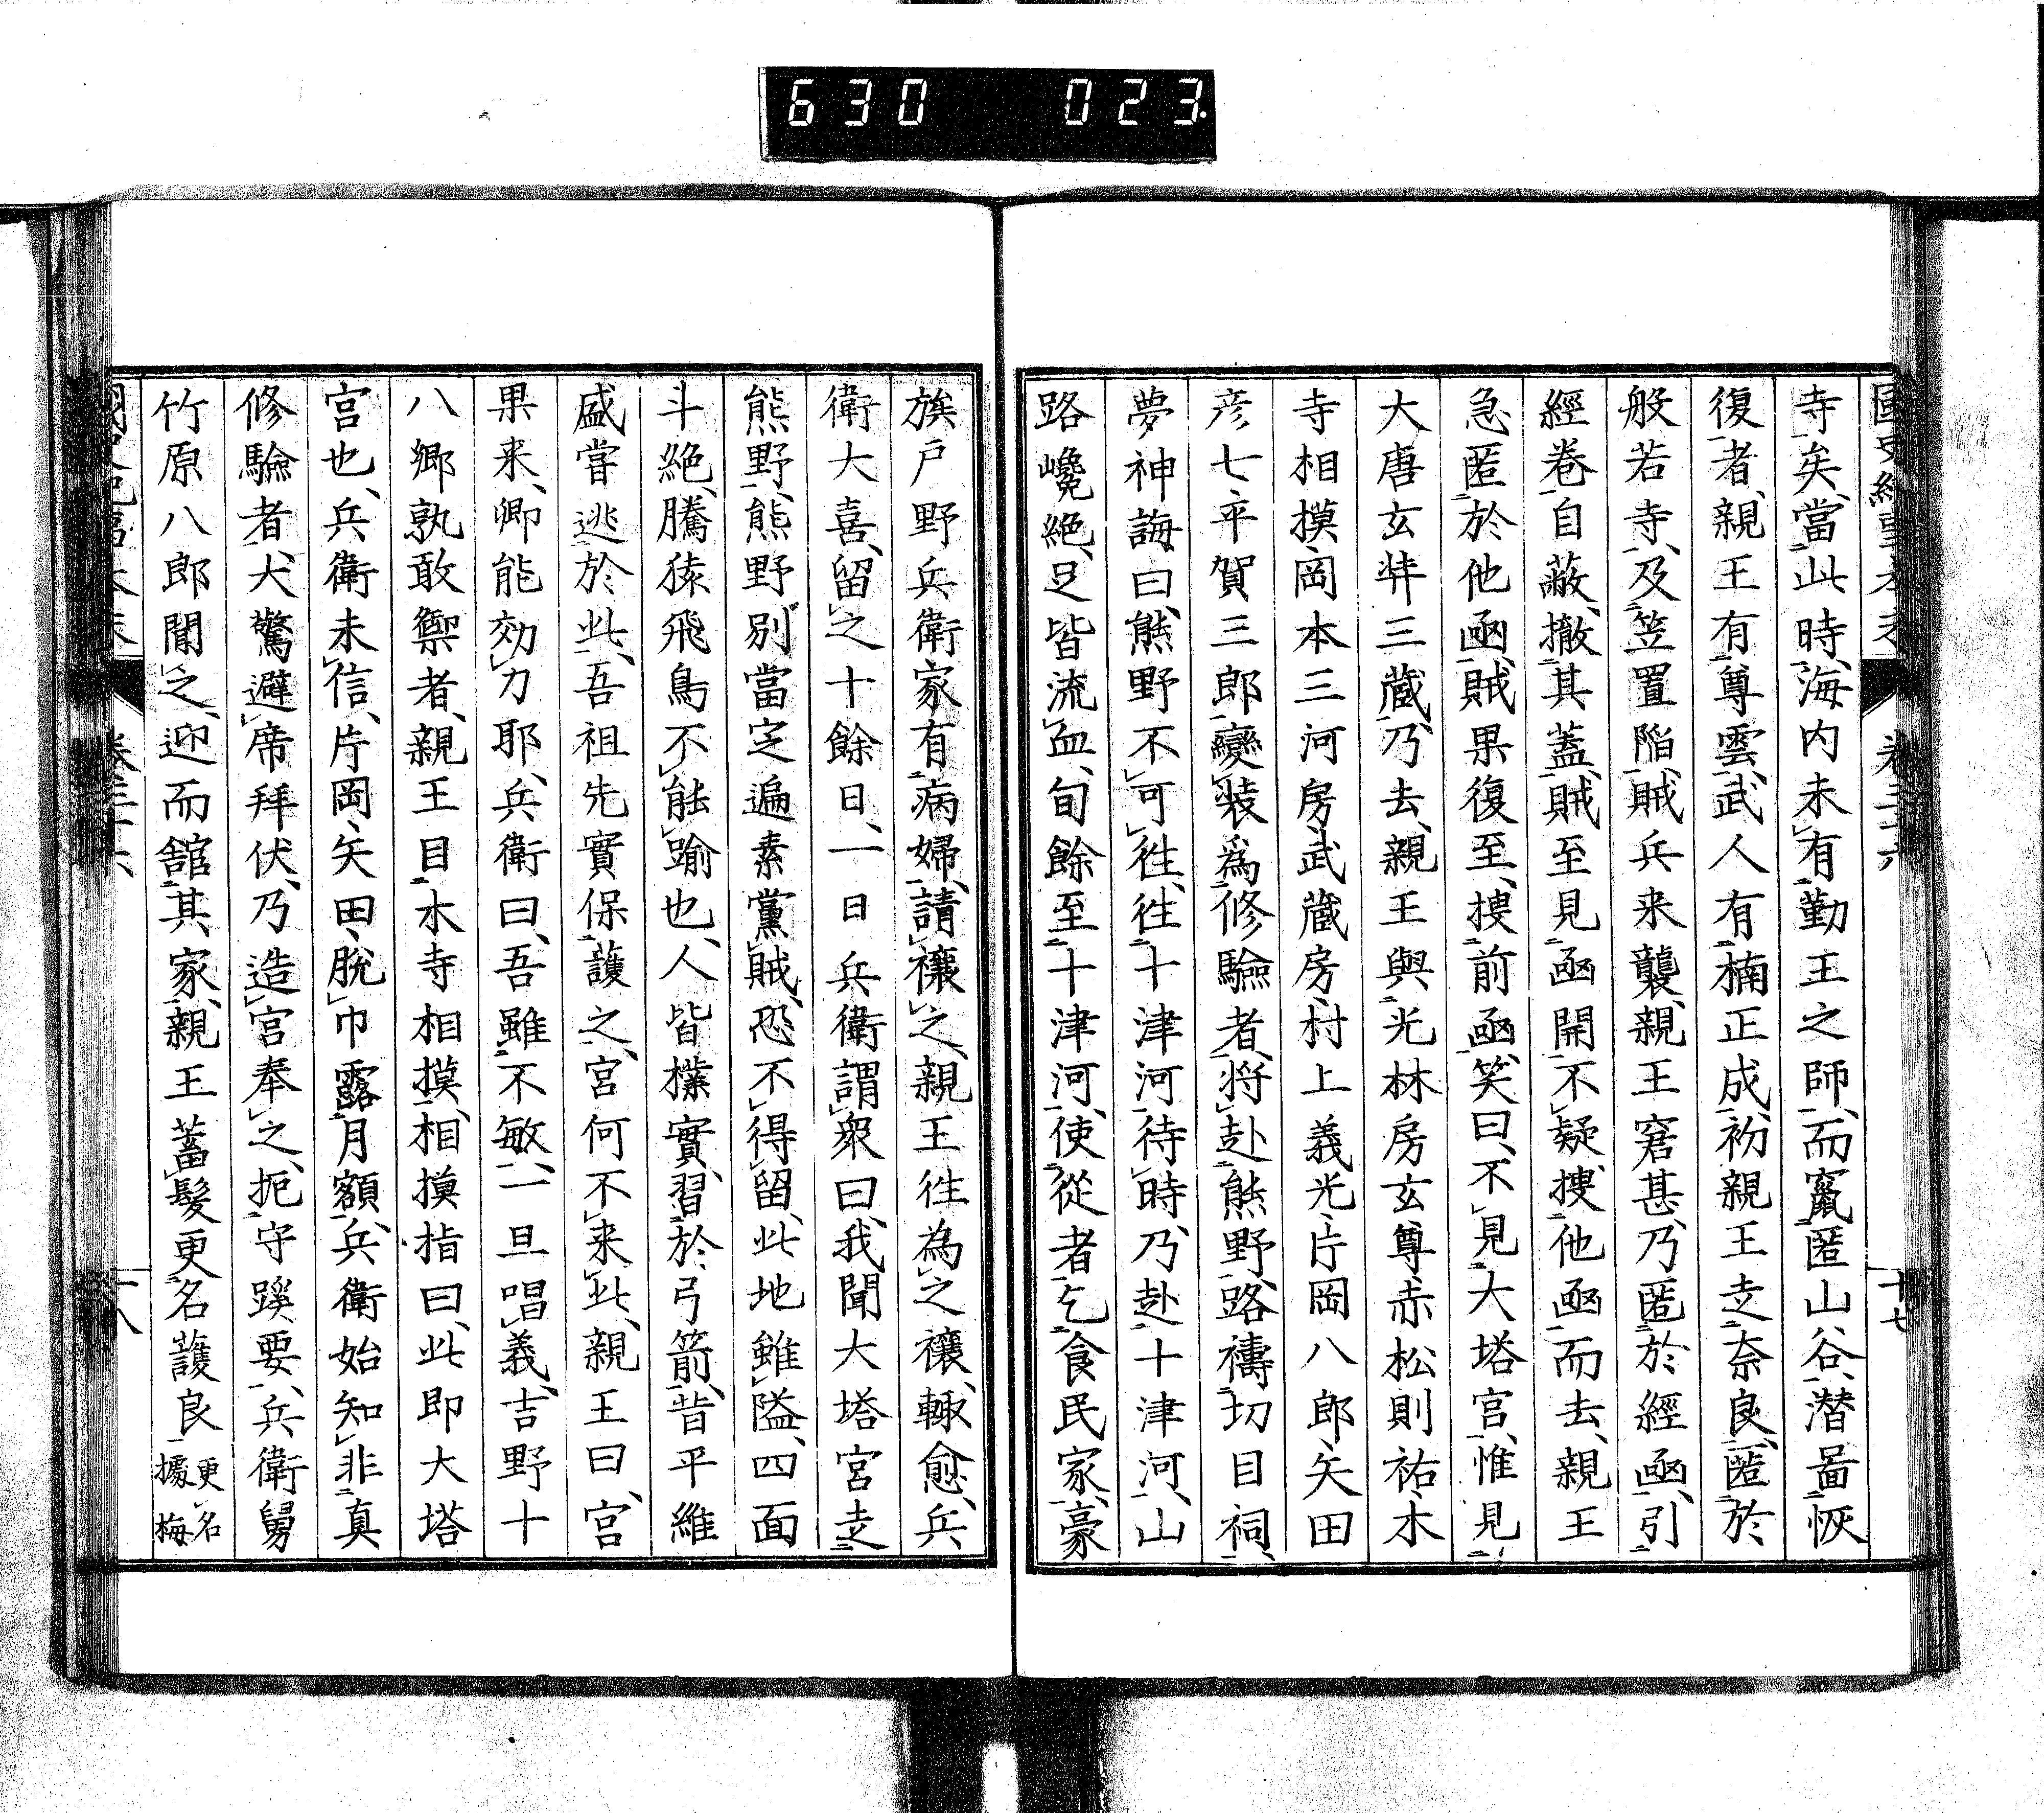 630 023
寺矣、當此時、海内未有勤王之師、而竄匿山谷、潜啚恢
復者、親王有尊雲、武人有楠正成、初親王走奈良、匿於
般若寺、及笠置陥、賊兵来襲、親王窘甚、乃匿於經凾、引
經卷自蔽、撤其蓋、賊至見凾開、不疑、捜他凾而去、親王
急匿於他凾、賊果復至、捜前凾、笑曰、不見大塔宮、惟見
大唐玄弉三蔵、乃去、親王與光林房玄尊、赤松則祐、木
寺相摸、岡本三河房、武蔵房、村上義光、片岡八郎、矢田
彦七、平賀三郎、變装為修驗者、将赴熊野、路禱切目祠、
夢神誨曰、熊野不可往、往十津河待時、乃赴十津河、山
路巉絶、足皆流血、旬餘至十津河、使從者乞食民家、豪
族戸野兵衛家有病婦、請禳之、親王往為之禳、輙愈、兵
衛大喜、留之十餘日、一日兵衛謂衆曰、我聞大塔宮走
熊野、熊野別當定遍素黨賊、恐不得留、此地雖隘、四面
斗絶、騰猿飛鳥不能踰也、人皆樸實、習於弓箭、昔平維
盛嘗逃於此、吾祖先實保護之、宮何不来此、親王曰、宮
果来、卿能効力耶、兵衛曰、吾雖不敏、一旦唱義、吉野十
八郷孰敢禦者、親王目木寺相摸、相摸指曰、此即大塔
宮也、兵衛未信、片岡、矢田、脱巾露月額、兵衛始知非真
修驗者、大驚避席拜伏、乃造宮奉之、扼守蹊要、兵衛舅
竹原八郎聞之、迎而舘其家、親王蓄髪更名護良 更名
據梅
卷三十六
十八